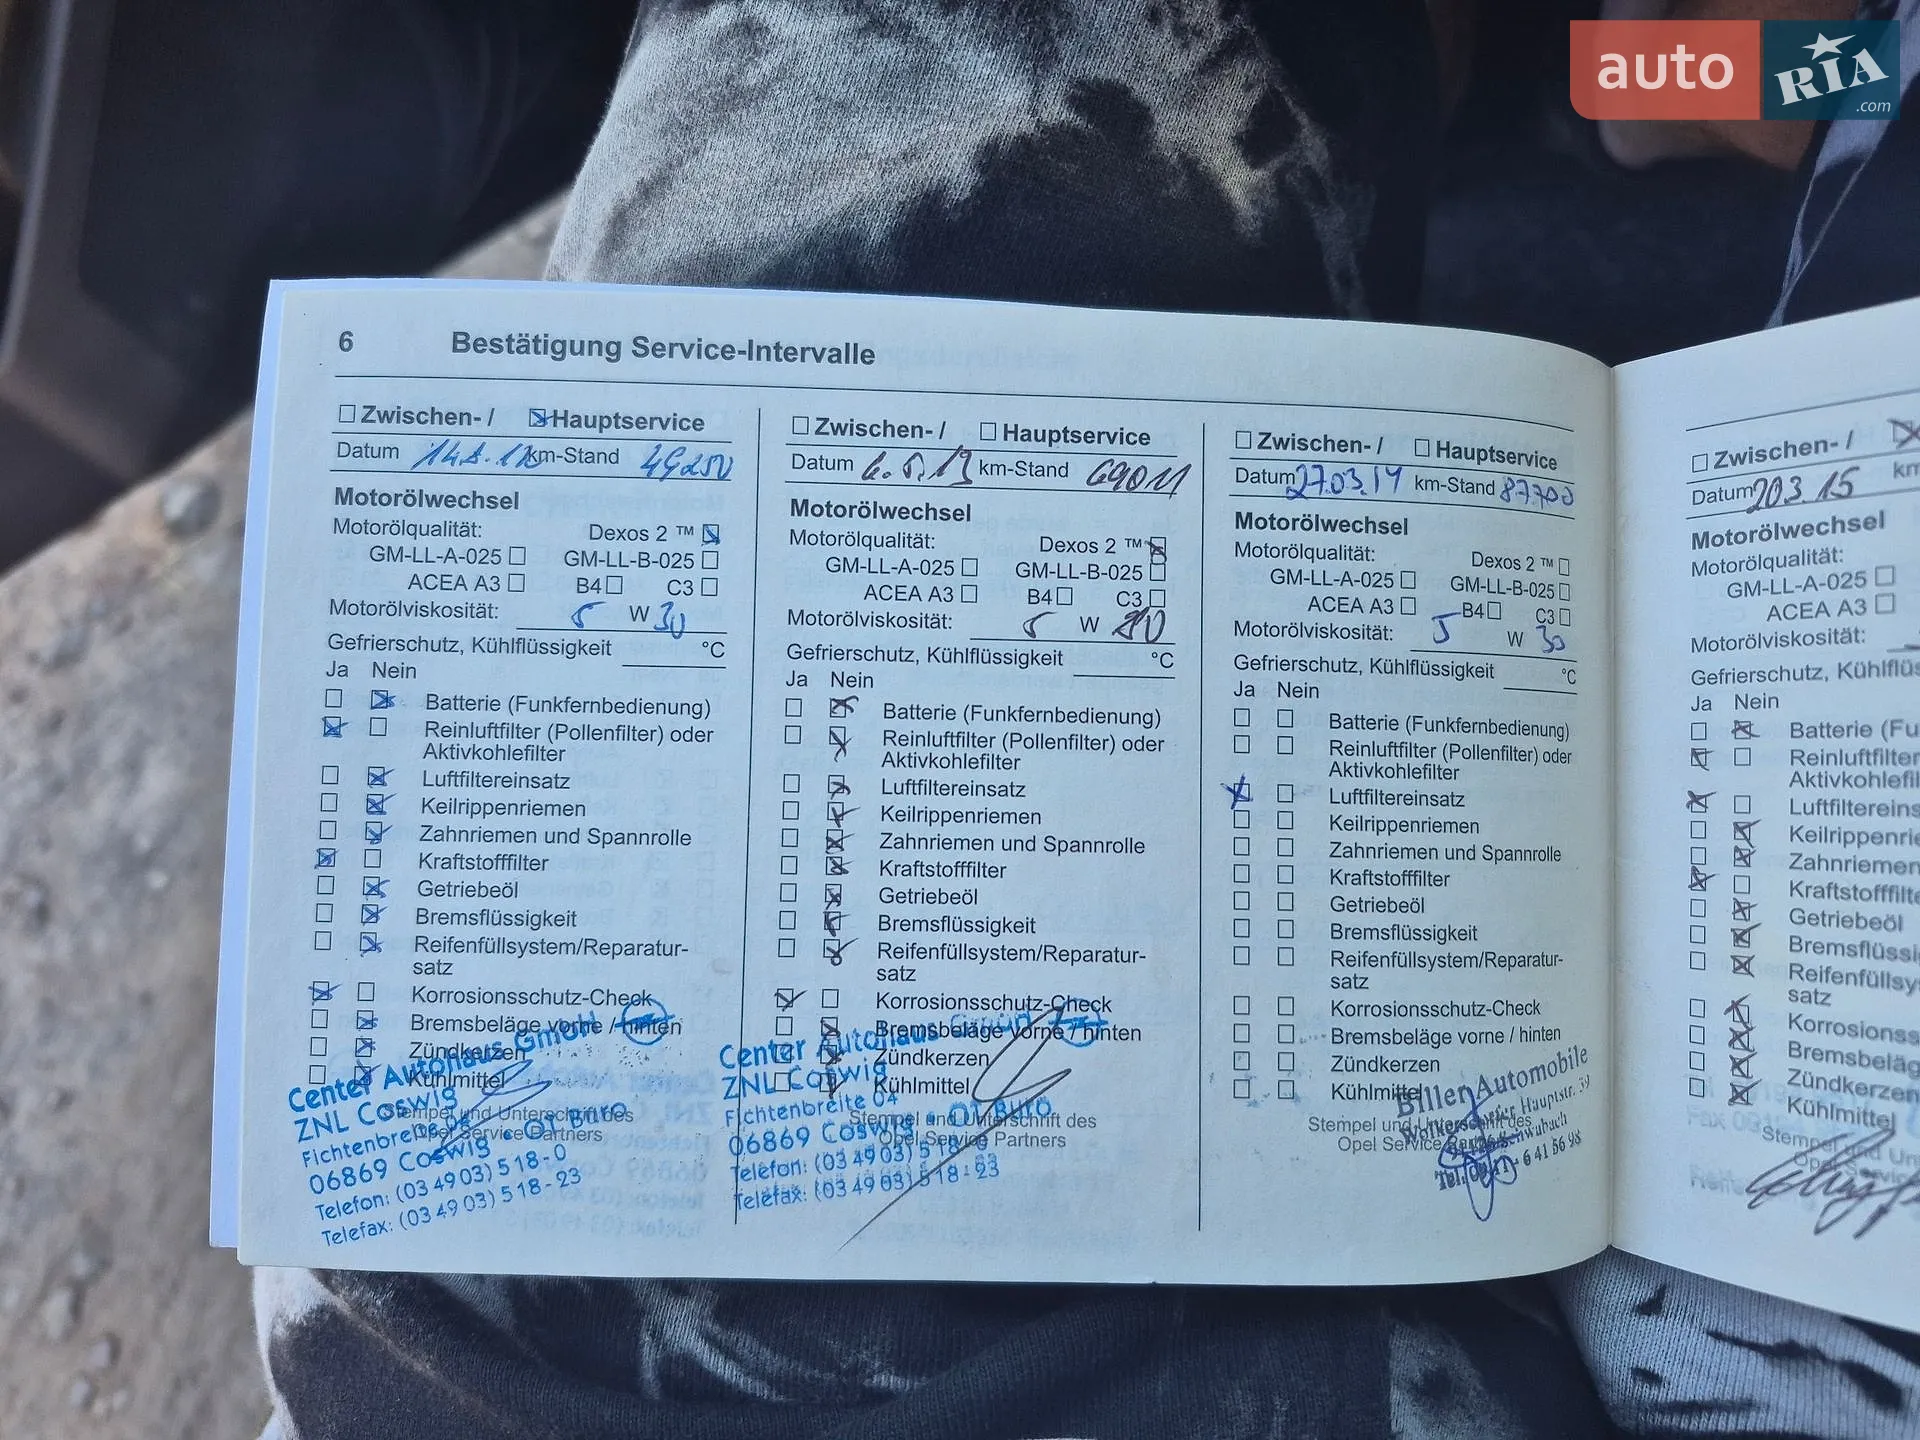 auto RIA.com
6 Bestätigung Service-Intervalle
Zwischen- / Hauptservice
Datum km-Stand 49250
Motorölwechsel
Motorölqualität: Dexos 2 ™
GM-LL-A-025 GM-LL-B-025
ACEA A3 B4 C3
Motorölviskosität: 5 W 30
Gefrierschutz, Kühlflüssigkeit °C
Ja Nein
Batterie (Funkfernbedienung)
Reinluftfilter (Pollenfilter) oder
Aktivkohlefilter
Luftfiltereinsatz
Keilrippenriemen
Zahnriemen und Spannrolle
Kraftstofffilter
Getriebeöl
Bremsflüssigkeit
Reifenfüllsystem/Reparatur-
satz
Korrosionsschutz-Check
Bremsbeläge vorne / hinten
Zündkerzen
Kühlmittel
Stempel und Unterschrift des
Opel Service Partners
Center Autohaus GmbH
ZNL Coswig
Fichtenbreite
06869 Coswig • OT Buro
Telefon: (03 49 03) 518-0
Telefax: (03 49 03) 518-23
Zwischen- / Hauptservice
Datum km-Stand 69011
Motorölwechsel
Motorölqualität: Dexos 2 ™
GM-LL-A-025 GM-LL-B-025
ACEA A3 B4 C3
Motorölviskosität: 5 W
Gefrierschutz, Kühlflüssigkeit °C
Ja Nein
Batterie (Funkfernbedienung)
Reinluftfilter (Pollenfilter) oder
Aktivkohlefilter
Luftfiltereinsatz
Keilrippenriemen
Zahnriemen und Spannrolle
Kraftstofffilter
Getriebeöl
Bremsflüssigkeit
Reifenfüllsystem/Reparatur-
satz
Korrosionsschutz-Check
Bremsbeläge vorne / hinten
Zündkerzen
Kühlmittel
Stempel und Unterschrift des
Opel Service Partners
Center Autohaus GmbH
ZNL Coswig
Fichtenbreite 04
06869 Coswig • OT Buro
Telefon: (03 49 03) 518-0
Telefax: (03 49 03) 518-23
Zwischen- / Hauptservice
Datum 27.03.14 km-Stand 87700
Motorölwechsel
Motorölqualität: Dexos 2 ™
GM-LL-A-025 GM-LL-B-025
ACEA A3 B4 C3
Motorölviskosität: 5 W 30
Gefrierschutz, Kühlflüssigkeit °C
Ja Nein
Batterie (Funkfernbedienung)
Reinluftfilter (Pollenfilter) oder
Aktivkohlefilter
Luftfiltereinsatz
Keilrippenriemen
Zahnriemen und Spannrolle
Kraftstofffilter
Getriebeöl
Bremsflüssigkeit
Reifenfüllsystem/Reparatur-
satz
Korrosionsschutz-Check
Bremsbeläge vorne / hinten
Zündkerzen
Kühlmittel
Stempel und Unterschrift des
Opel Service
Biller Automobile
Hauptstr. 39
Schwabach
Zwischen- /
Datum 203 15 km
Motorölwechsel
Motorölqualität:
GM-LL-A-025
ACEA A3
Motorölviskosität:
Gefrierschutz, Kühlflüs
Ja Nein
Batterie (Fu
Reinluftfilter
Aktivkohlefil
Luftfiltereins
Keilrippenrie
Zahnriemen
Kraftstofffilte
Getriebeöl
Bremsflüssi
Reifenfüllsy
satz
Korrosionss
Bremsbeläg
Zündkerzen
Kühlmittel
Stempel und Un
Opel Servic